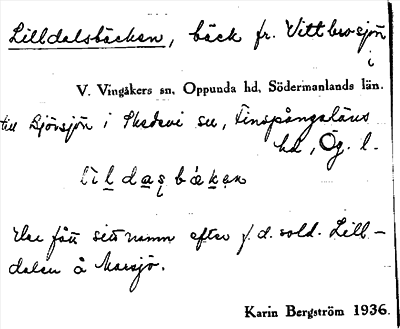 Lilldalsbäcken, bäck fr. Vittbrosjön
i
V. Vingåkers sn, Oppunda hd, Södermanlands län.
till Djörsjön i Skedevi sn, Finspångaläns
hd, Ög. l.
lìldasbɛkən
Har fått sitt namn efter f.d. sold. Lill-
dalen å Marsjö.
Karin Bergström 1936.